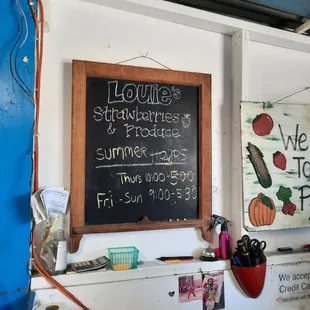 Louie's
Strawberries
& Produce
Summer HRS
Thurs 10:00-5:00
Fri-Sun 9:00-5:30
We
To
P
We Accept
Credit Ca